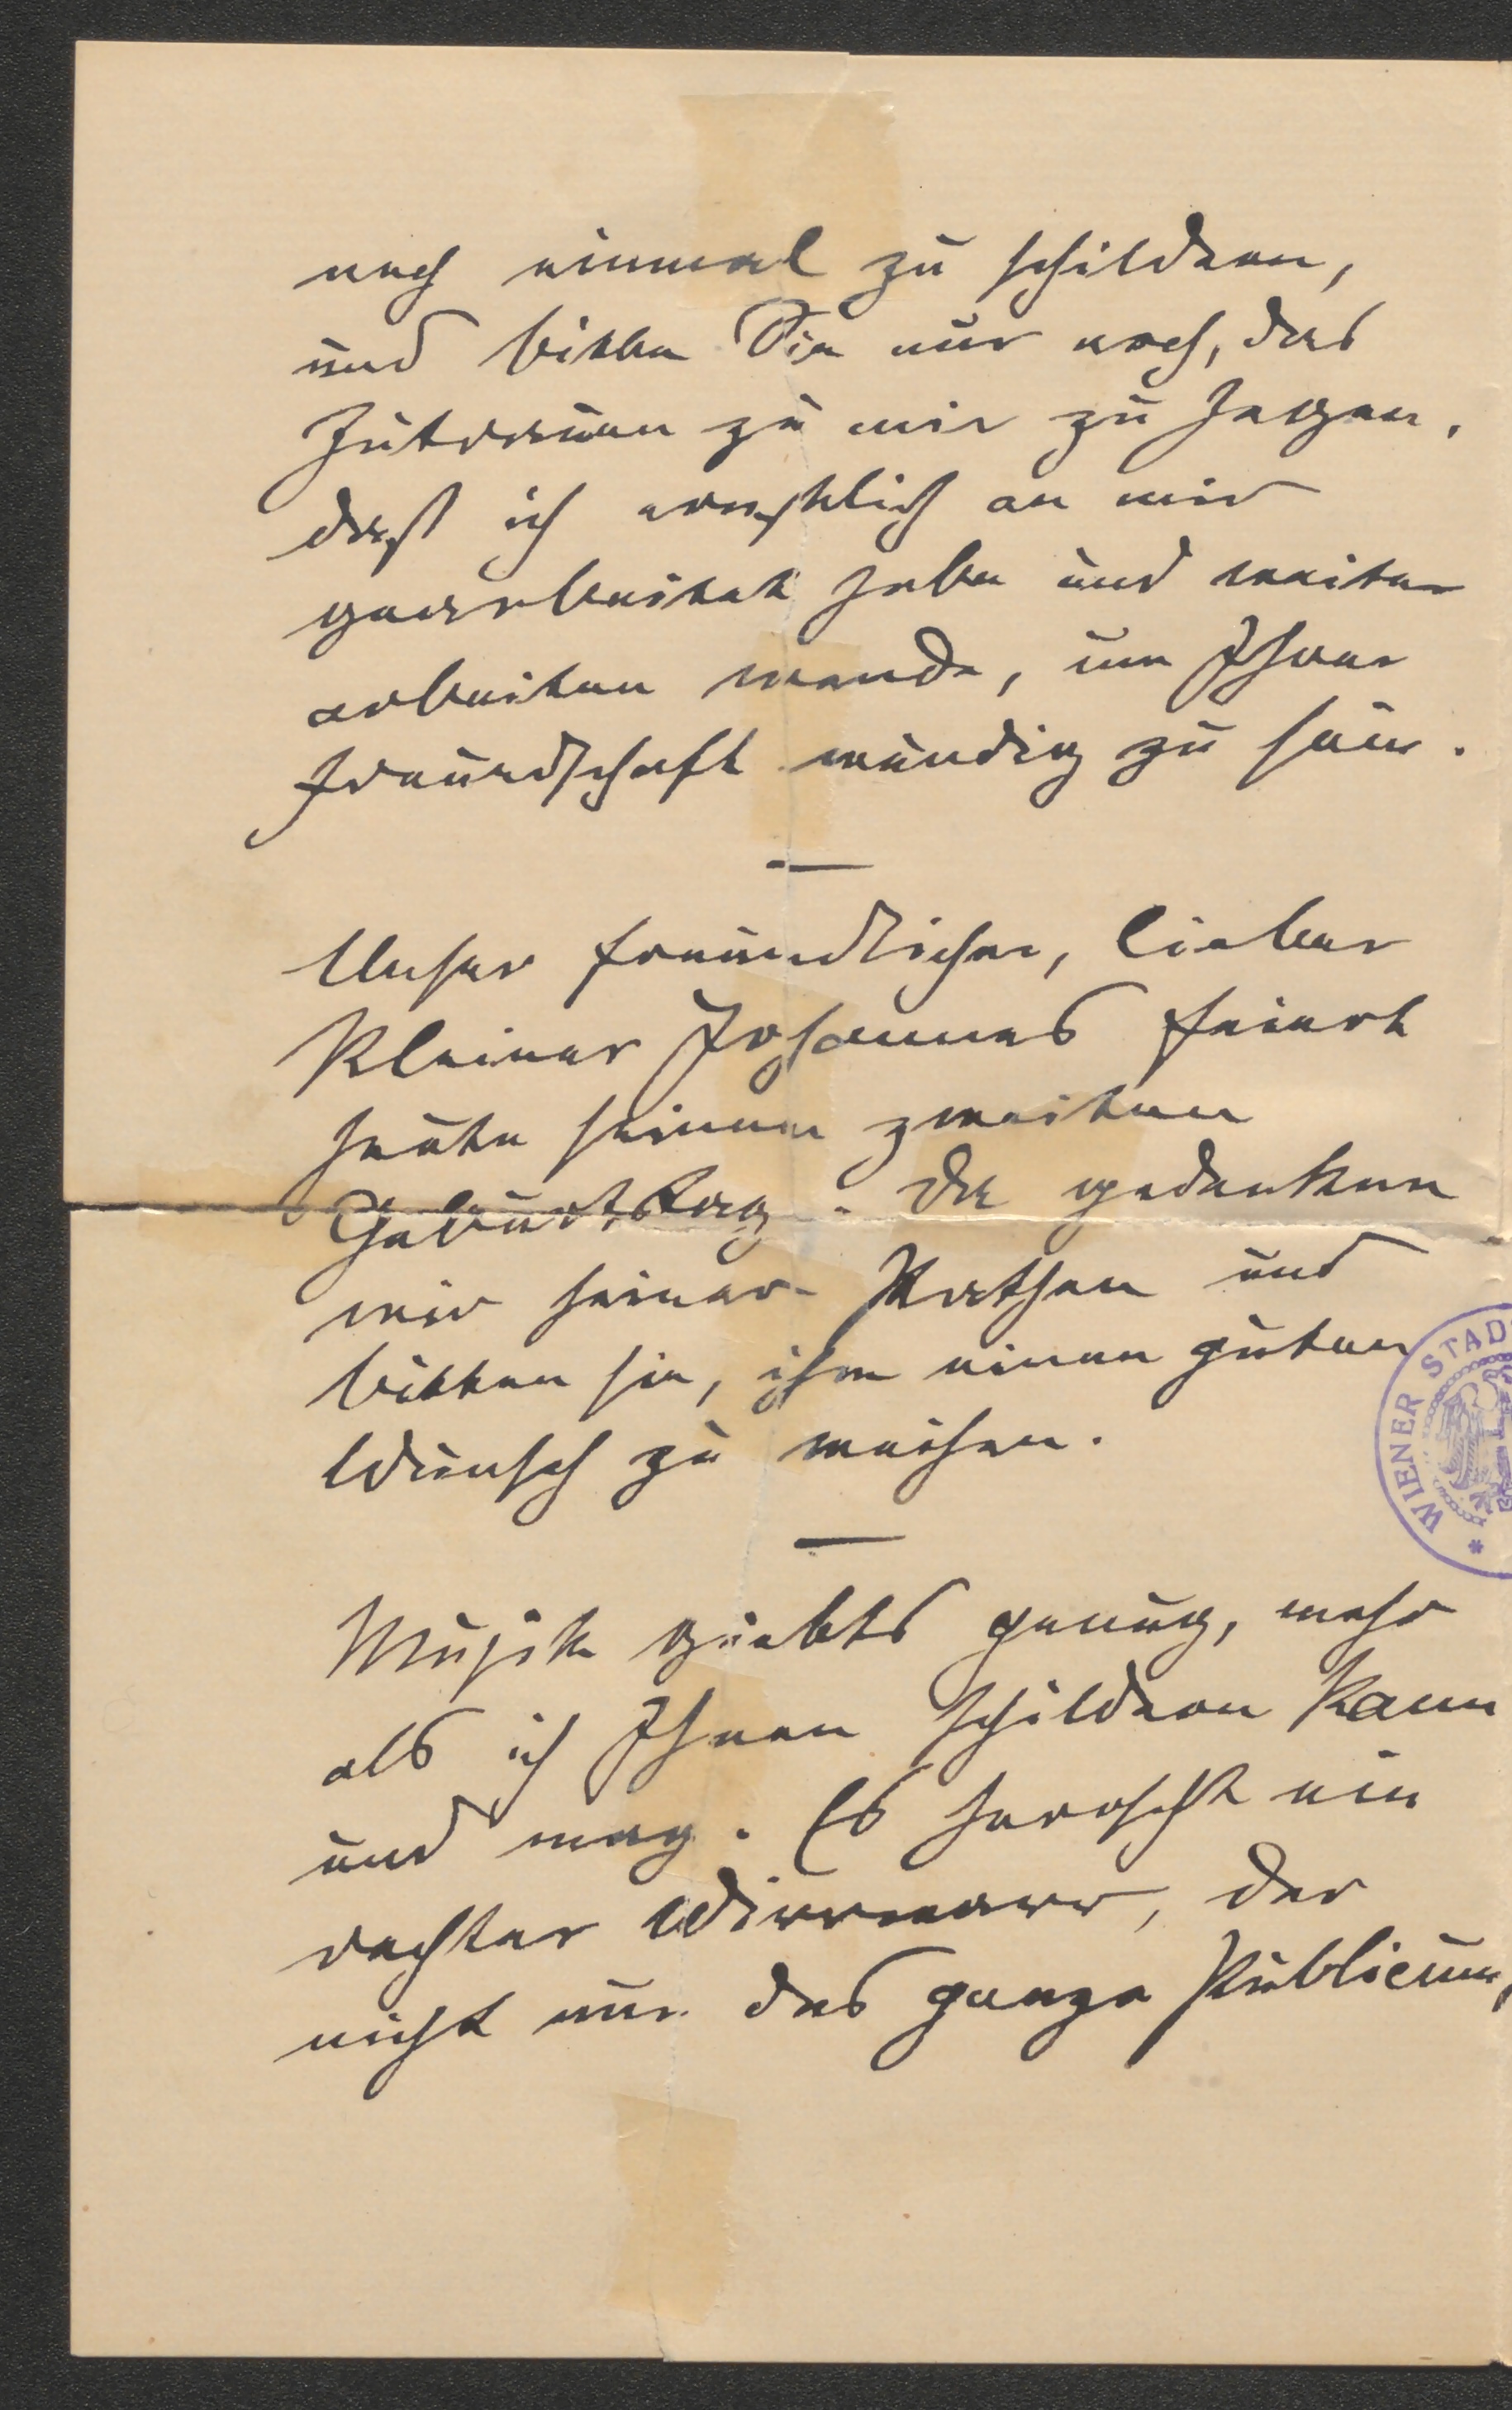 noch einmal zu schildern,
und bitte Sie nur noch, das
Zutrauen zu mir zu hegen,
daß ich ernstlich an mir
gearbeitet habe und weiter
arbeiten werde, um Ihrer
Freundschaft würdig zu sein.
—
Unser freundlicher, lieber
kleiner Johannes feiert
heute seinen zweiten
Geburtstag. Da gedenken
wir seiner Pathen und
bitten sie, ihm einen guten
Wunsch zu weihen.
—
Musik giebts genug, mehr
als ich Ihnen schildern kann
und mag. Es herrscht ein
rechter Wirrwarr, der
nicht nur das ganze Publicum,
WIENER STAD